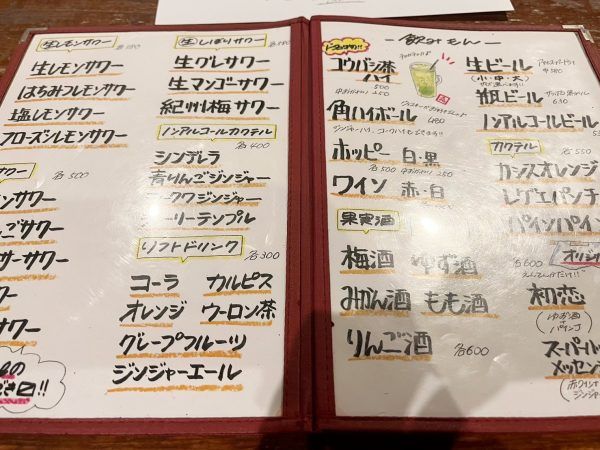 生レモンサワー
生レモンサワー
はちみつレモンサワー
塩レモンサワー
フローズンレモンサワー
サワー 各500
ンサワー
ごサワー
サーサワー
ワー
サワー
生しぼりサワー
生グレサワー
生マンゴーサワー
紀州梅サワー
ノンアルコールカクテル
各400
シンデレラ
青りんごジンジャー
ークワジンジャー
ーリーテンプル
ソフトドリンク 各300
コーラ カルピス
オレンジ ウーロン茶
グレープフルーツ
ジンジャーエール
-飲みもん-
コウバシ茶
ハイ
角ハイボール
ホッピー 白・黒
ワイン 赤・白
果実酒
梅酒 ゆず酒
みかん酒 もも酒
りんご酒 各600
生ビール
(小・中・大)
瓶ビール
ノンアルコールビール
カクテル 各550
カシスオレンジ
レゲエパンチ
パインパイン
各600
オリジ
初恋
(ゆず酒
+
パイン)
スーパーハ
メッセン